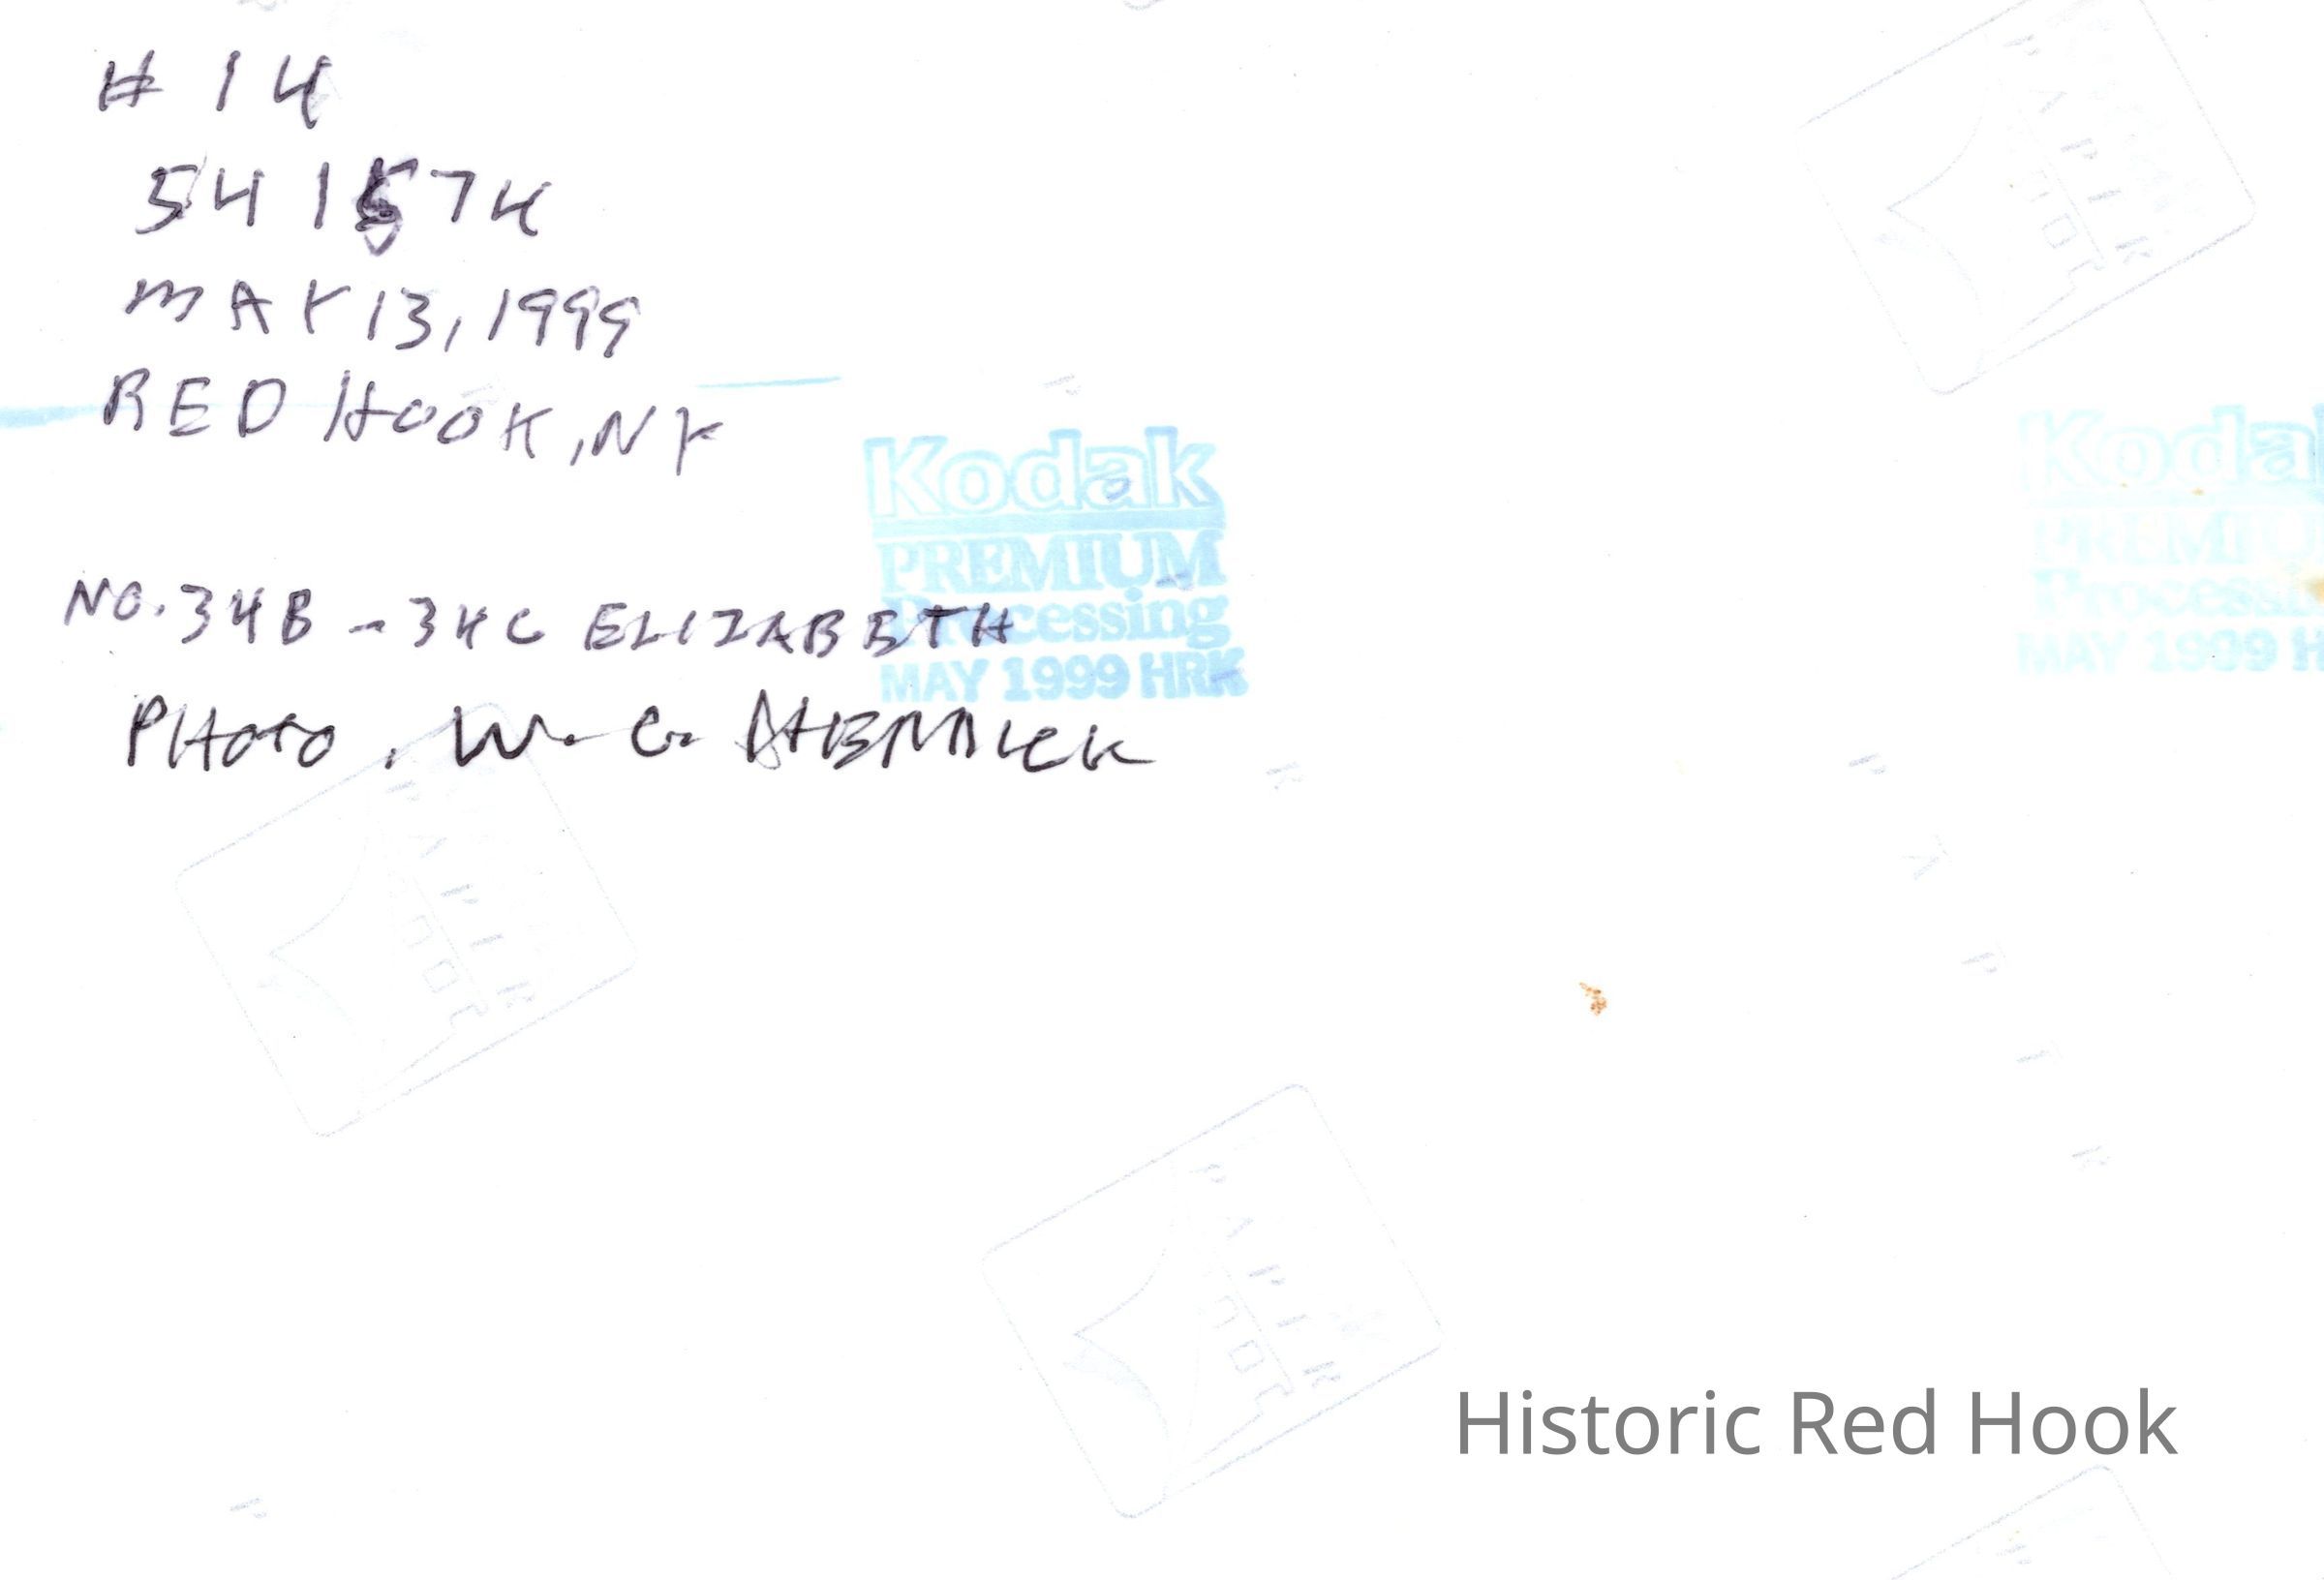 # 14
541574
MAY 13, 1999
RED HOOK, NY
NO. 34B - 34C ELIZABETH
PHOTO. W. C.
Kodak
PREMIUM
Processing
MAY 1999 HRK
Koda
PREMIU
Processi
MAY 1999 H
Historic Red Hook